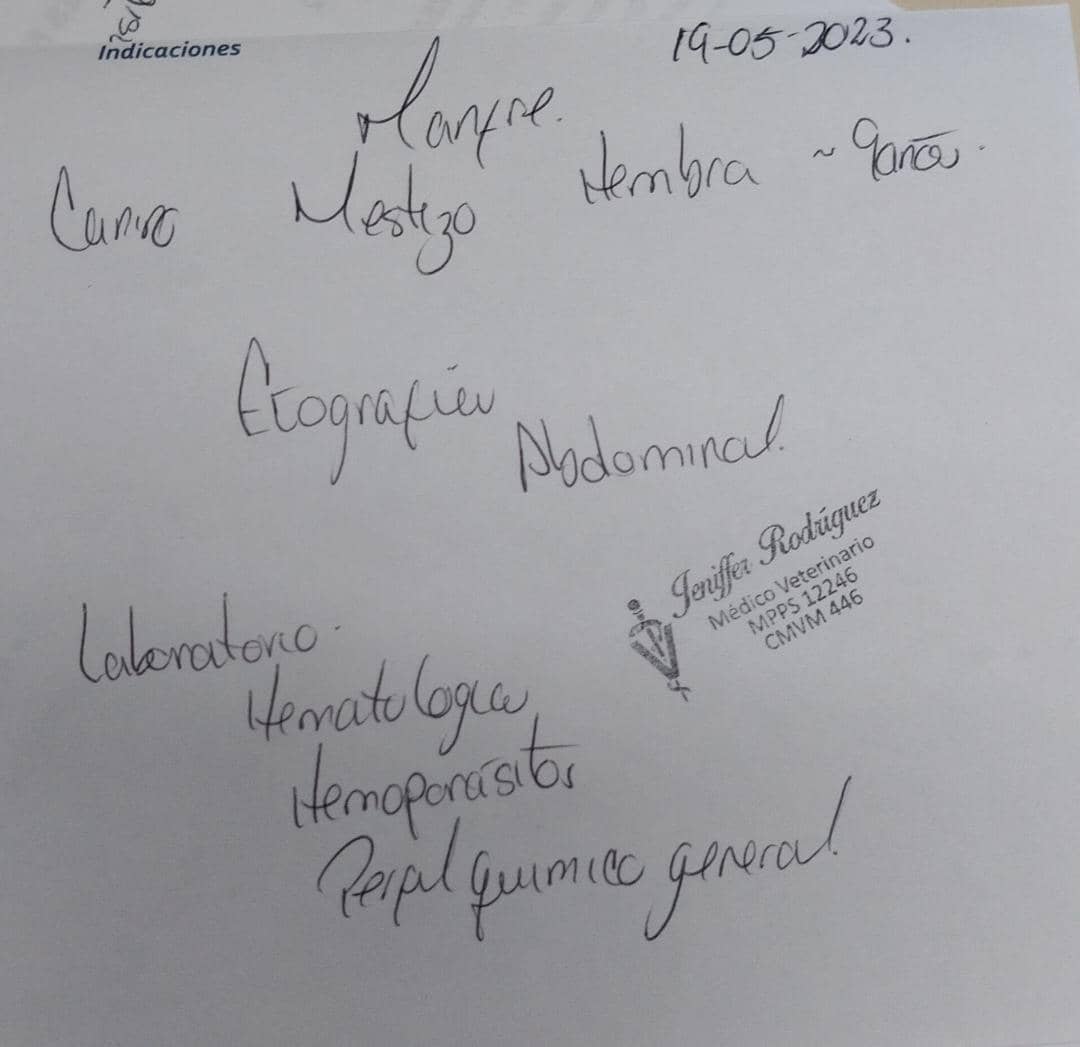 Indicaciones
19-05-2023.
Manfre.
Canino Mestizo Hembra ~ 9años.
Ecografía
Abdominal.
Jeniffer Rodríguez
Médico Veterinario
MPPS 12246
CMVM 446
Laboratorio.
Hematología
Hemoparásitos
Perfil químico general.